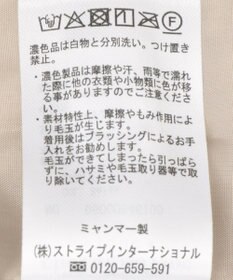 濃色品は白物と分別洗い。つけ置き
禁止。
・濃色製品は摩擦や汗、雨等で濡れ
た際に他の衣類や小物類に色が移
る事がありますのでご注意くださ
い。
・素材特性上、摩擦やもみ作用によ
り毛玉が生じます。
着用後はブラッシングによるお手
入れをお勧めします。
毛玉ができてしまったら引っぱら
ずに、ハサミや毛玉取り器等で取
り除いてください。
ミャンマー製
(株)ストライプインターナショナル
☎ 0120-659-591